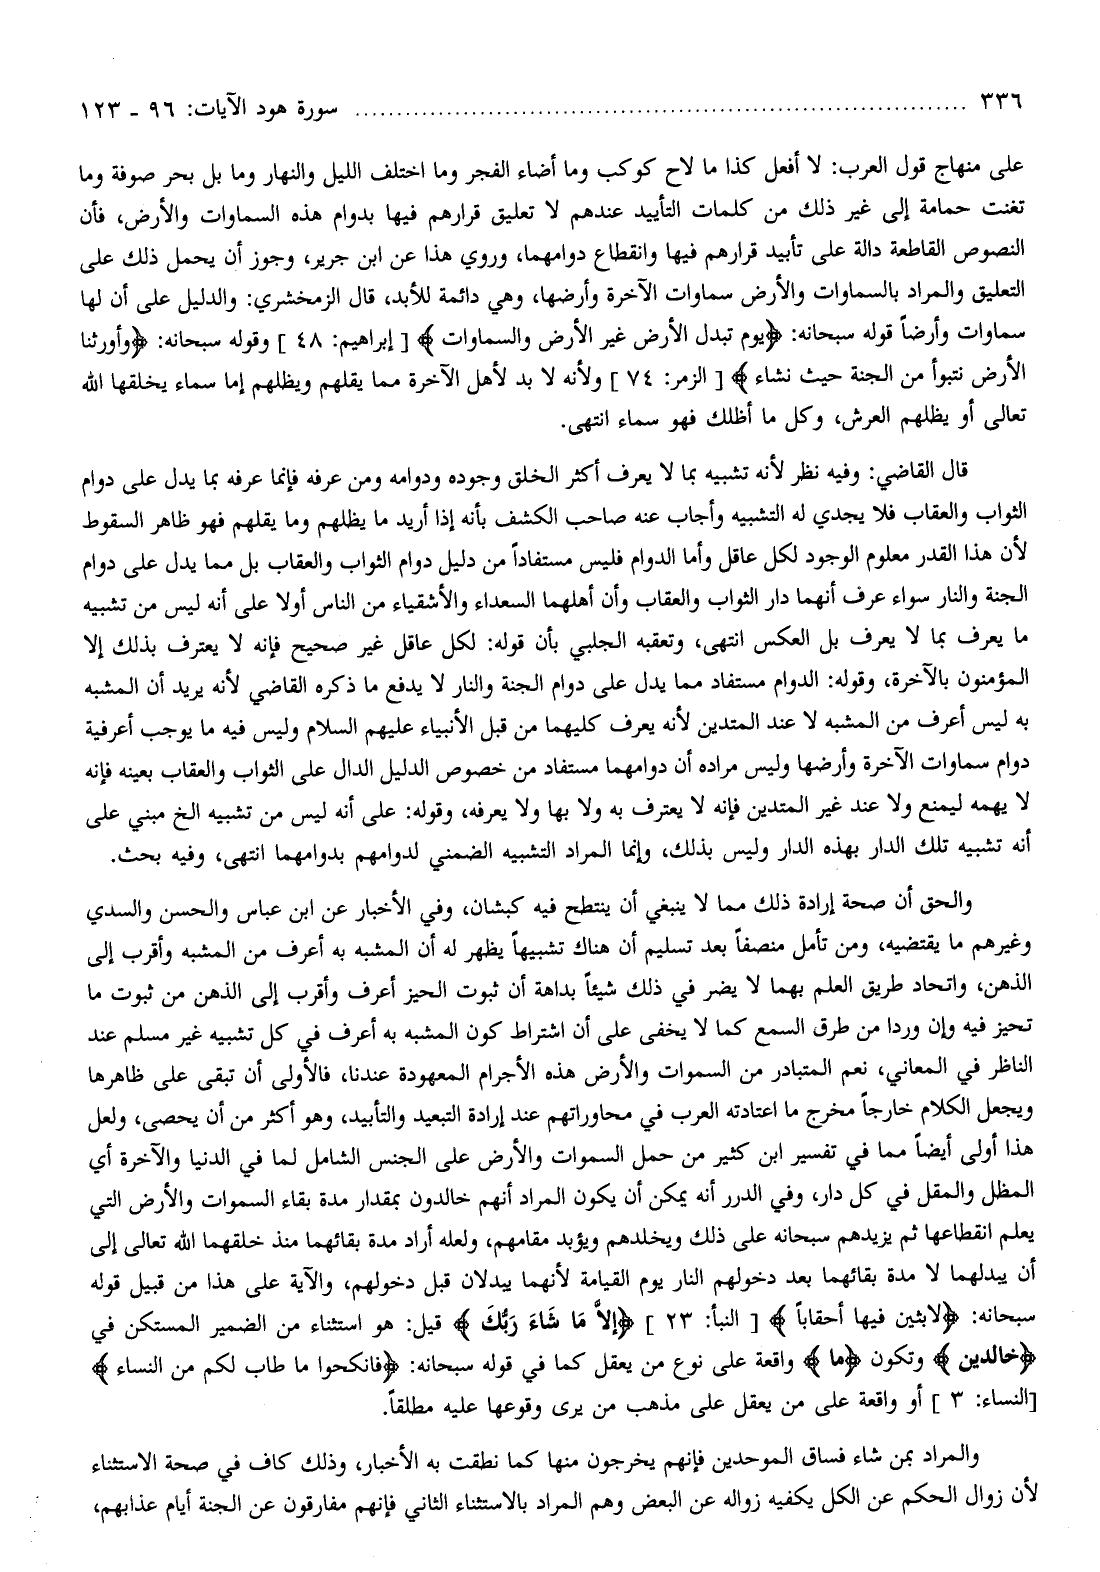 ٣٣٦ ........................................................................ سورة هود الآيات: ٩٦ ـ ١٢٣
على منهاج قول العرب: لا أفعل كذا ما لاح كوكب وما أضاء الفجر وما اختلف الليل والنهار وما بل بحر صوفة وما
تغنت حمامة إلى غير ذلك من كلمات التأييد عندهم لا تعليق قرارهم فيها بدوام هذه السماوات والأرض، فأن
النصوص القاطعة دالة على تأبيد قرارهم فيها وانقطاع دوامهما، وروي هذا عن ابن جرير، وجوز أن يحمل ذلك على
التعليق والمراد بالسماوات والأرض سماوات الآخرة وأرضها، وهي دائمة للأبد، قال الزمخشري: والدليل على أن لها
سماوات وأرضاً قوله سبحانه: ﴿يوم تبدل الأرض غير الأرض والسماوات ﴾ [ إبراهيم: ٤٨ ] وقوله سبحانه: ﴿وأورثنا
الأرض نتبوأ من الجنة حيث نشاء ﴾ [ الزمر: ٧٤ ] ولأنه لا بد لأهل الآخرة مما يقلهم ويظلهم إما سماء يخلقها الله
تعالى أو يظلهم العرش، وكل ما أظلك فهو سماء انتهى.
قال القاضي: وفيه نظر لأنه تشبيه بما لا يعرف أكثر الخلق وجوده ودوامه ومن عرفه فإنما عرفه بما يدل على دوام
الثواب والعقاب فلا يجدي له التشبيه وأجاب عنه صاحب الكشف بأنه إذا أريد ما يظلهم وما يقلهم فهو ظاهر السقوط
لأن هذا القدر معلوم الوجود لكل عاقل وأما الدوام فليس مستفاداً من دليل دوام الثواب والعقاب بل مما يدل على دوام
الجنة والنار سواء عرف أنهما دار الثواب والعقاب وأن أهلهما السعداء والأشقياء من الناس أولا على أنه ليس من تشبيه
ما يعرف بما لا يعرف بل العكس انتهى، وتعقبه الجلبي بأن قوله: لكل عاقل غير صحيح فإنه لا يعترف بذلك إلا
المؤمنون بالآخرة، وقوله: الدوام مستفاد مما يدل على دوام الجنة والنار لا يدفع ما ذكره القاضي لأنه يريد أن المشبه
به ليس أعرف من المشبه لا عند المتدين لأنه يعرف كليهما من قبل الأنبياء عليهم السلام وليس فيه ما يوجب أعرفية
دوام سماوات الآخرة وأرضها وليس مراده أن دوامهما مستفاد من خصوص الدليل الدال على الثواب والعقاب بعينه فإنه
لا يهمه ليمنع ولا عند غير المتدين فإنه لا يعترف به ولا بها ولا يعرفه، وقوله: على أنه ليس من تشبيه الخ مبني على
أنه تشبيه تلك الدار بهذه الدار وليس بذلك، وإنما المراد التشبيه الضمني لدوامهم بدوامهما انتهى، وفيه بحث.
والحق أن صحة إرادة ذلك مما لا ينبغي أن ينتطح فيه كبشان، وفي الأخبار عن ابن عباس والحسن والسدي
وغيرهم ما يقتضيه، ومن تأمل منصفاً بعد تسليم أن هناك تشبيهاً يظهر له أن المشبه به أعرف من المشبه وأقرب إلى
الذهن، واتحاد طريق العلم بهما لا يضر في ذلك شيئاً بداهة أن ثبوت الحيز أعرف وأقرب إلى الذهن من ثبوت ما
تحيز فيه وإن وردا من طرق السمع كما لا يخفى على أن اشتراط كون المشبه به أعرف في كل تشبيه غير مسلم عند
الناظر في المعاني، نعم المتبادر من السموات والأرض هذه الأجرام المعهودة عندنا، فالأولى أن تبقى على ظاهرها
ويجعل الكلام خارجاً مخرج ما اعتادته العرب في محاوراتهم عند إرادة التبعيد والتأبيد، وهو أكثر من أن يحصى، ولعل
هذا أولى أيضاً مما في تفسير ابن كثير من حمل السموات والأرض على الجنس الشامل لما في الدنيا والآخرة أي
المظل والمقل في كل دار، وفي الدرر أنه يمكن أن يكون المراد أنهم خالدون بمقدار مدة بقاء السموات والأرض التي
يعلم انقطاعها ثم يزيدهم سبحانه على ذلك ويخلدهم ويؤبد مقامهم، ولعله أراد مدة بقائهما منذ خلقهما الله تعالى إلى
أن يبدلهما لا مدة بقائهما بعد دخولهم النار يوم القيامة لأنهما يبدلان قبل دخولهم، والآية على هذا من قبيل قوله
سبحانه: ﴿لابثين فيها أحقاباً ﴾ [ النبأ: ٢٣ ] ﴿إلاَّ مَا شَاءَ رَبُّكَ ﴾ قيل: هو استثناء من الضمير المستكن في
﴿خالدين ﴾ وتكون ﴿ما ﴾ واقعة على نوع من يعقل كما في قوله سبحانه: ﴿فانكحوا ما طاب لكم من النساء ﴾
[النساء: ٣ ] أو واقعة على من يعقل على مذهب من يرى وقوعها عليه مطلقاً.
والمراد بمن شاء فساق الموحدين فإنهم يخرجون منها كما نطقت به الأخبار، وذلك كاف في صحة الاستثناء
لأن زوال الحكم عن الكل يكفيه زواله عن البعض وهم المراد بالاستثناء الثاني فإنهم مفارقون عن الجنة أيام عذابهم،